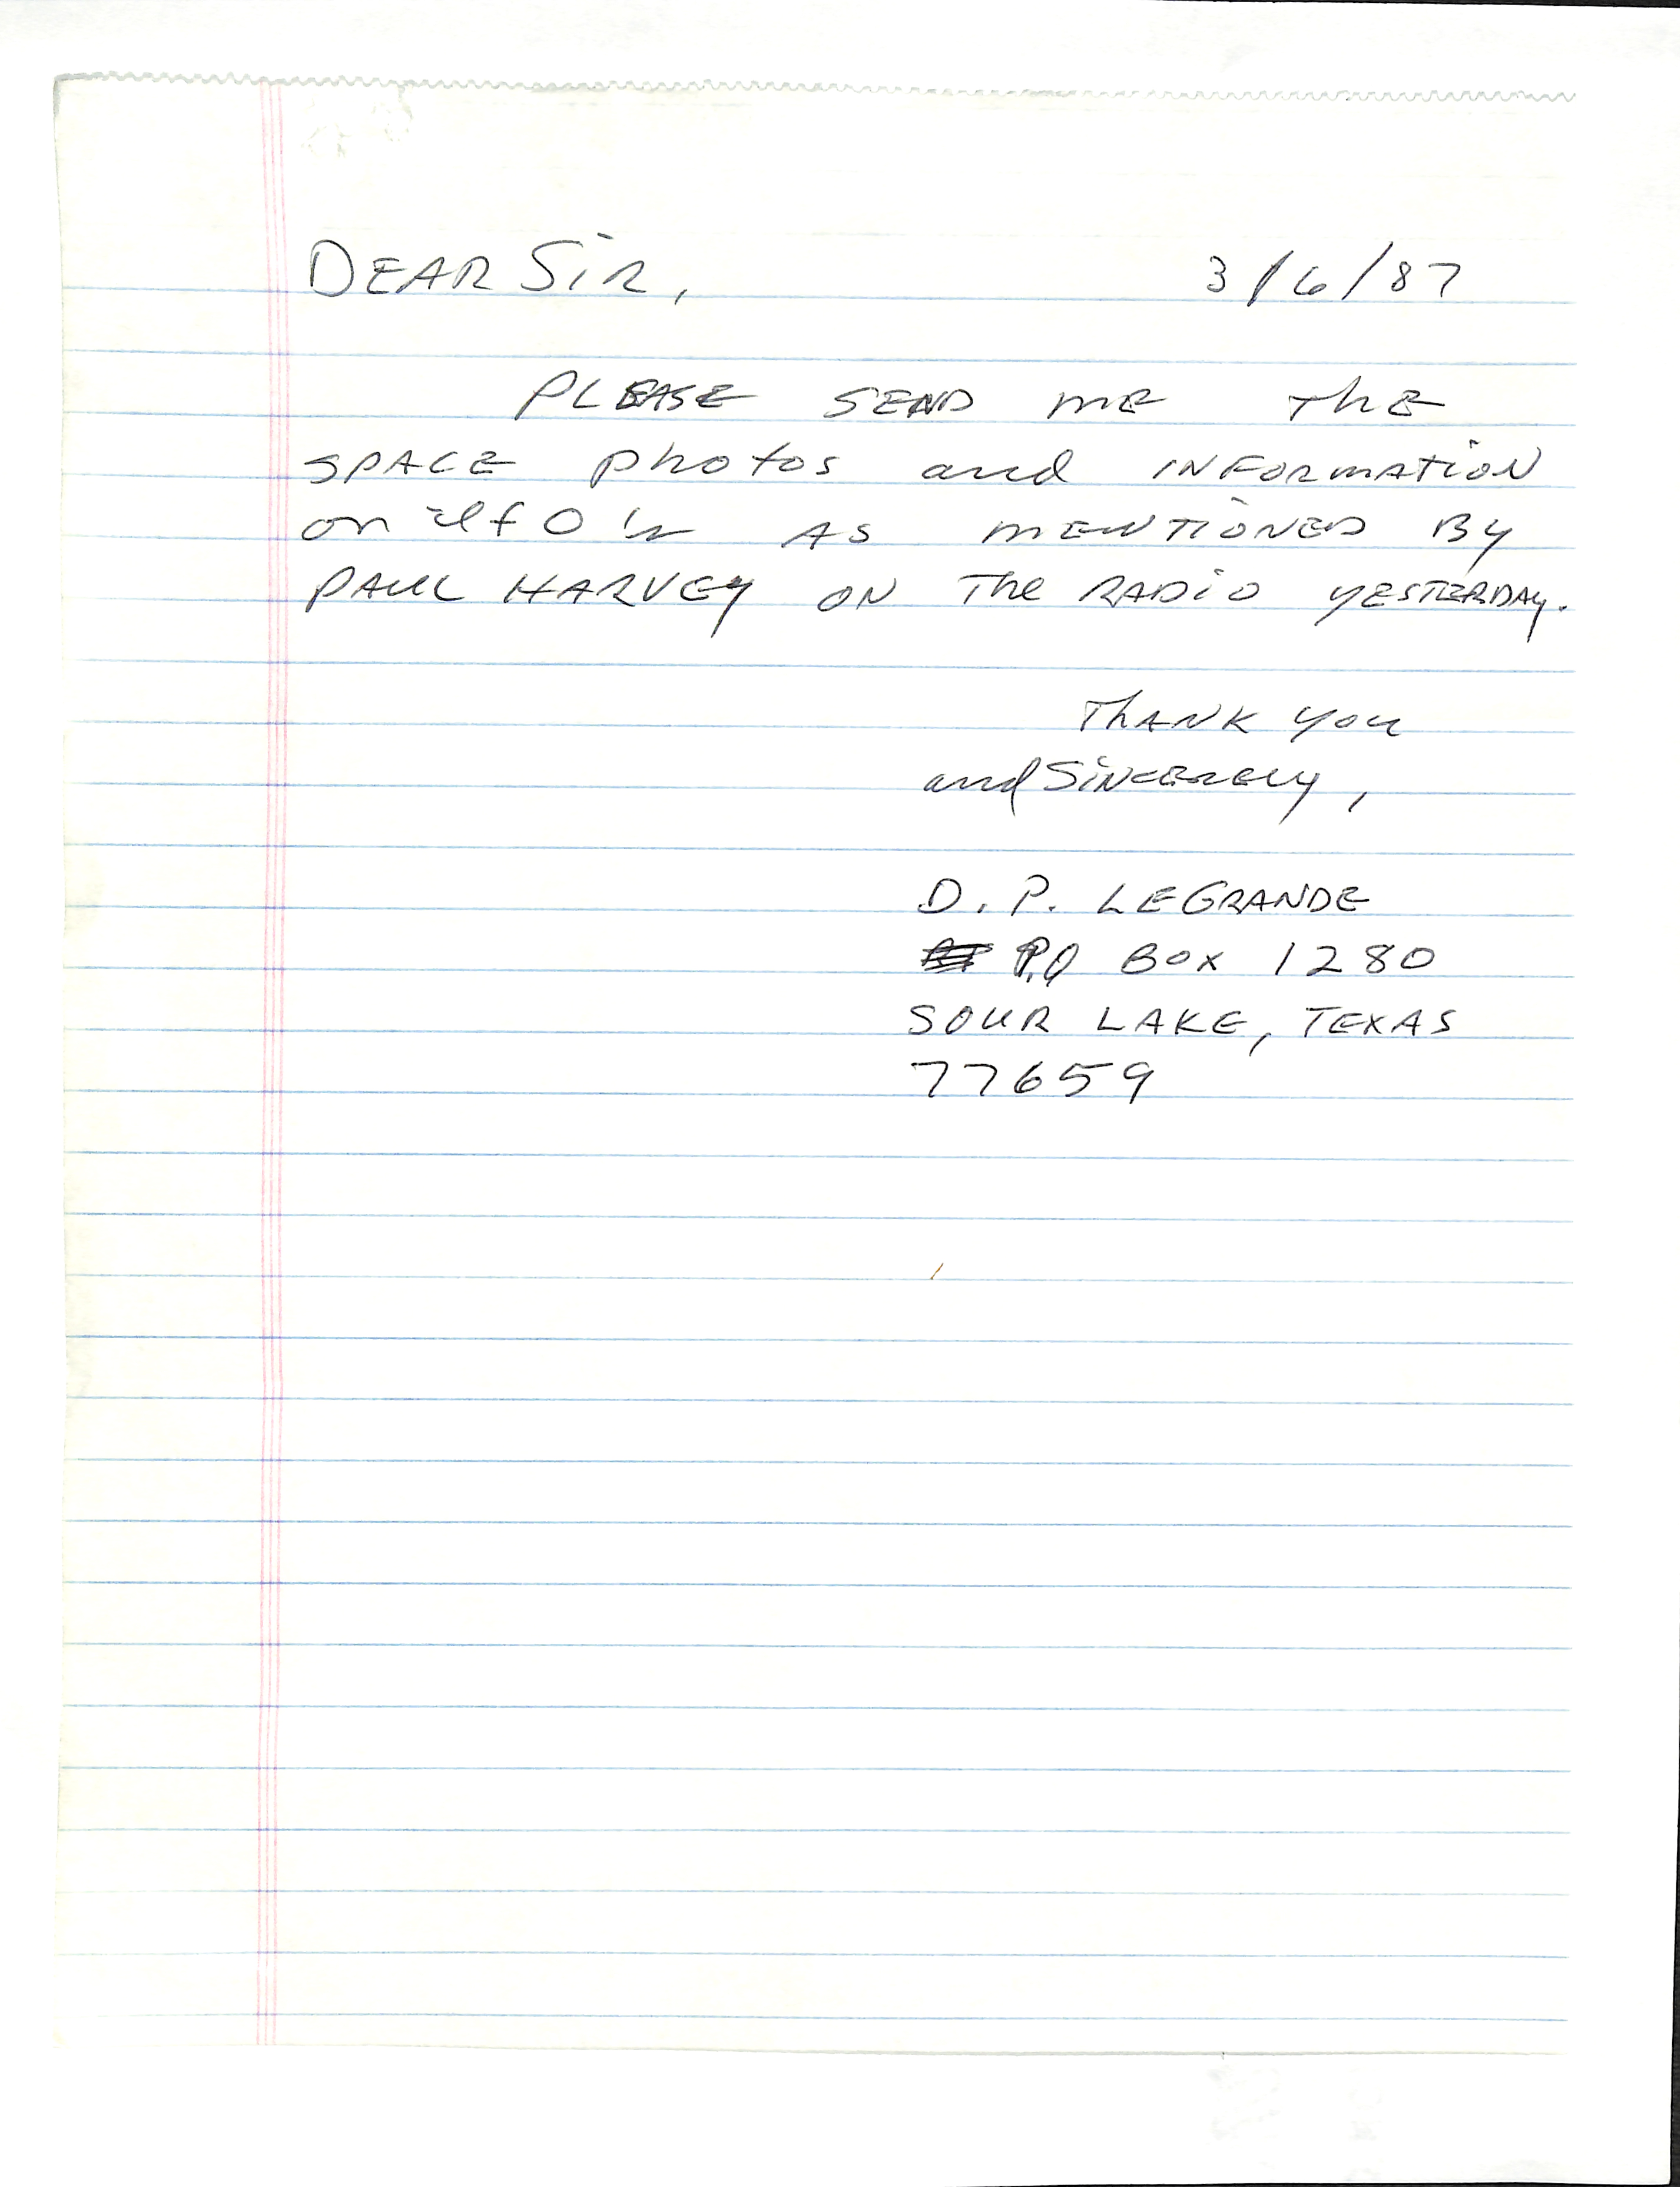 DEAR SiR, 3/6/87
PLEASE SEND ME ThE
SPACE photos and INFORMATiON
on UfO's AS MENTiONED By
PAUL HARVEY ON The RADiO yESTERDAy.
ThANK you
and SiNCERELy,
D. P. LEGRANDE
P.O BOX 1280
SOUR LAKE, TEXAS
77659